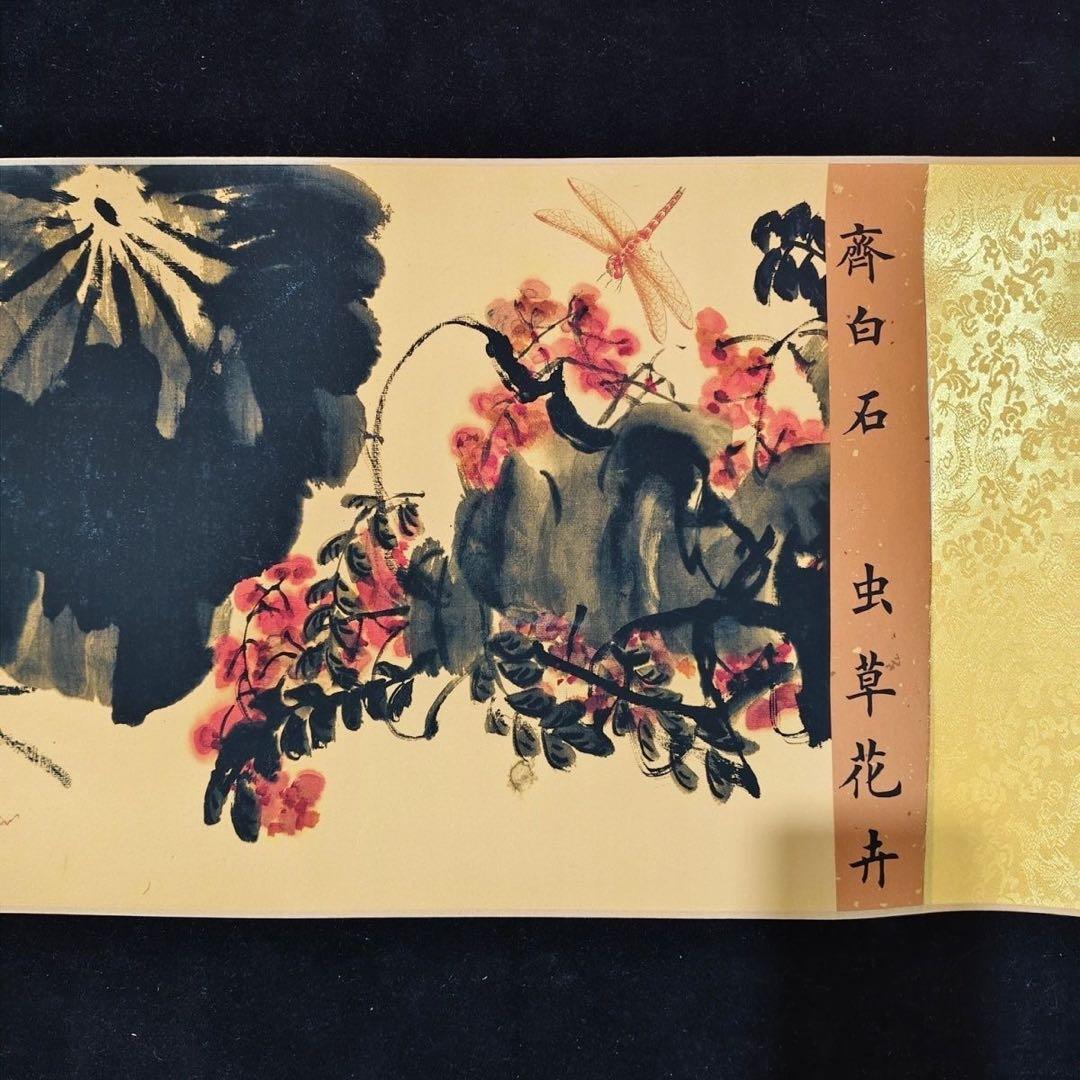 齊白石 虫草花卉